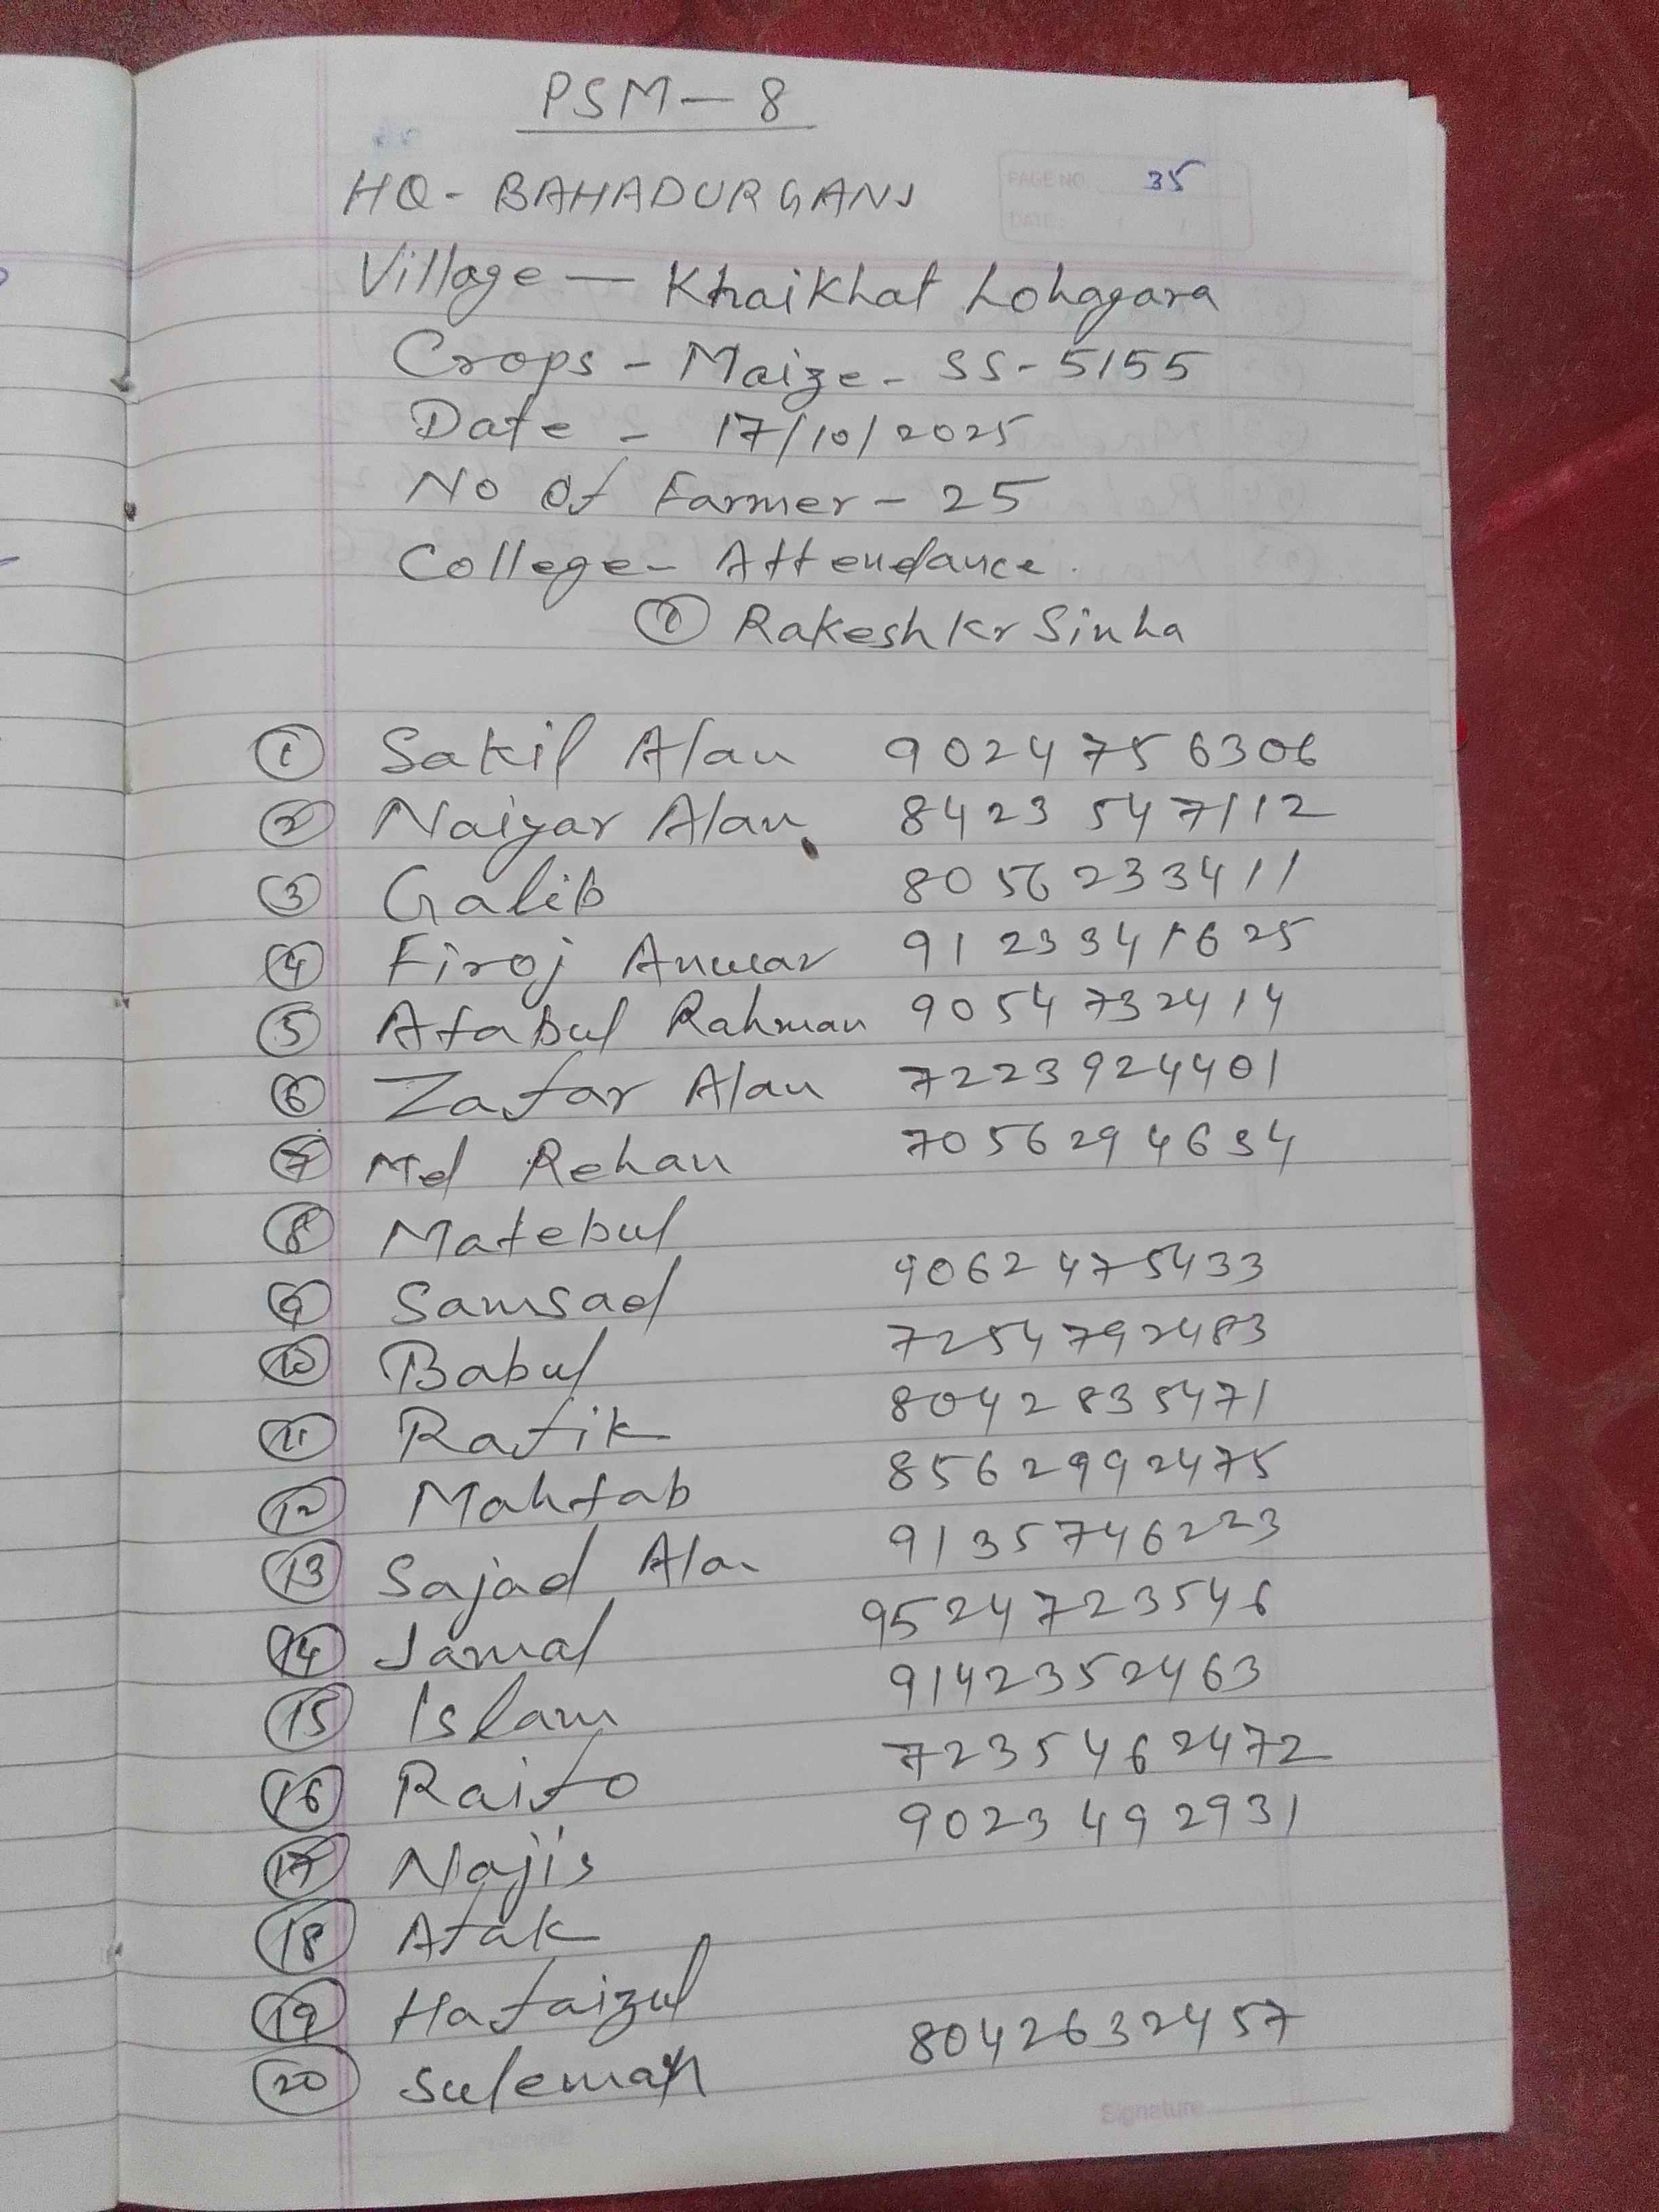 PSM - 8
HQ - BAHADURGANJ
PAGE NO. 35
DATE: / /
Village - Khaikhat Lohagara
Crops - Maize - SS-5155
Date - 17/10/2025
No Of Farmer - 25
College - Attendance.
① Rakesh Kr Sinha
① Sakil Alan 9024756306
② Naiyar Alan 8423547112
③ Galib 8056233411
④ Firoj Anwar 9123341625
⑤ Afabul Rahman 9054732414
⑥ Zafar Alan 7223924401
⑦ Md Rehan 7056294634
⑧ Matebul
⑨ Samsad 9062475433
⑩ Babul 7254792483
⑪ Rafik 8042835471
⑫ Mahtab 8562992475
⑬ Sajad Alan 9135746223
⑭ Jamal 9524723546
⑮ Islam 9142352463
⑯ Raifo 7235462472
⑰ Najis 9023492931
⑱ Afak
⑲ Hafaizul
⑳ Suleman 8042632457
Signature